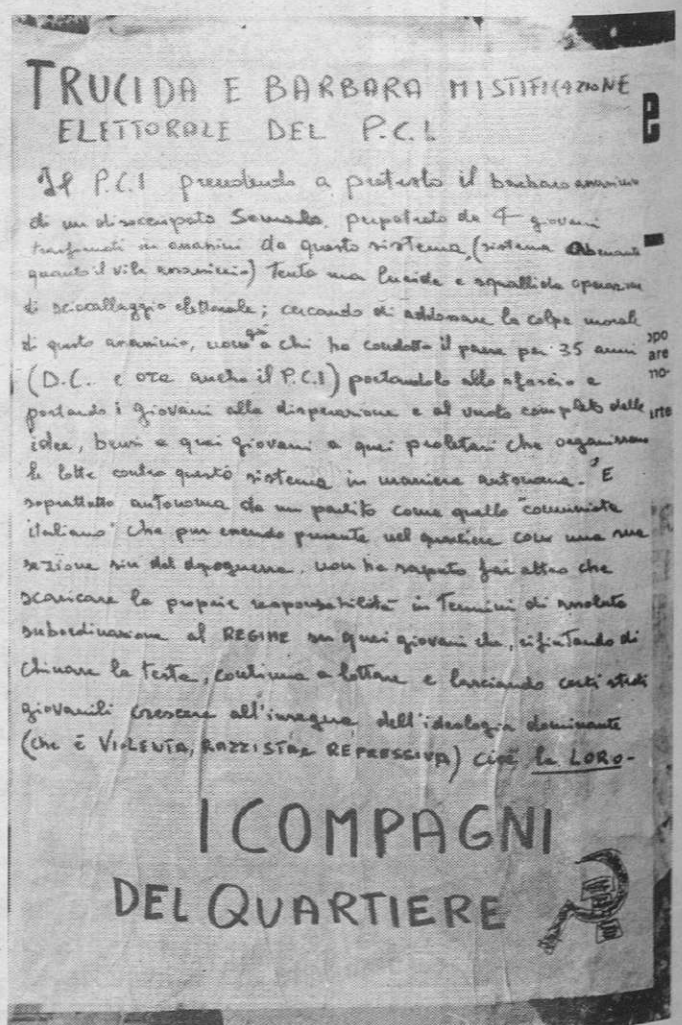 TRUCIDA E BARBARA MISTIFICAZIONE
ELETTORALE DEL P.C.I.
Il P.C.I prendendo a pretesto il barbaro assassinio
di un disoccupato Somalo, perpetrato da 4 giovani
trasformati in assassini da questo sistema, (sistema
quanto il vile assassinio) tenta una lucida e squallida operazione
di sciacallaggio elettorale; cercando di addossare la colpa morale
di questo assassinio, non già a chi ha condotto il paese per 35 anni
(D.C. e ora anche il P.C.I) portandolo allo sfascio e
portando i giovani alla disperazione e al vuoto completo delle
idee, bensì a quei giovani a quei proletari che organizzano
le lotte contro questo sistema in maniera autonoma. E
soprattutto autonoma da un partito come quello "comunista
italiano" che pur essendo presente nel quartiere con una sua
sezione sin dal dopoguerra, non ha saputo far altro che
scaricare le proprie responsabilità in termini di assoluta
subordinazione al REGIME su quei giovani che, rifiutando di
chinare la testa, continua a lottare e lasciando certi strati
giovanili crescere all'insegna dell'ideologia dominante
(che è VIOLENTA, RAZZISTA e REPRESSIVA) cioè la LORO-
I COMPAGNI
DEL QUARTIERE
e
opo
are
no-
arte